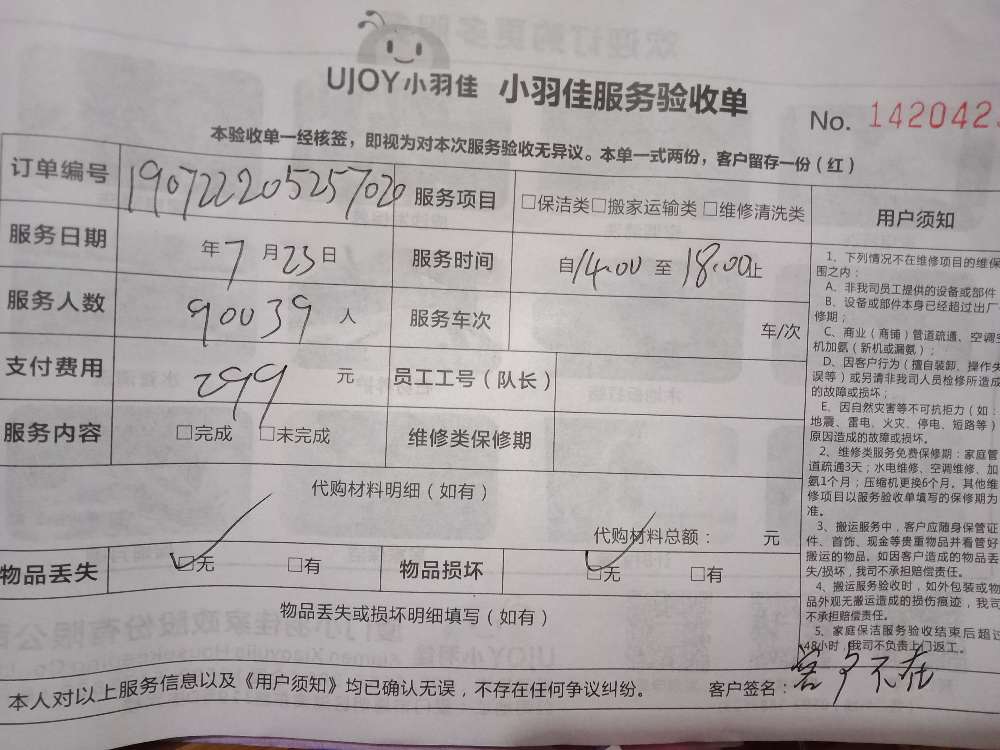 UJOY小羽佳 小羽佳服务验收单
No. 1420423
本验收单一经核签，即视为对本次服务验收无异议。本单一式两份，客户留存一份（红）
订单编号 190722205257020 服务项目 □保洁类□搬家运输类 □维修清洗类
服务日期 年7月23日 服务时间 自14.00至18.00止
服务人数 90039人 服务车次 车/次
支付费用 299 元 员工工号（队长）
服务内容 □完成 □未完成 维修类保修期
代购材料明细（如有）
代购材料总额： 元
物品丢失 □无 □有 物品损坏 □无 □有
物品丢失或损坏明细填写（如有）
本人对以上服务信息以及《用户须知》均已确认无误，不存在任何争议纠纷。 客户签名：客户不在
用户须知
1、下列情况不在维修项目的维保
围之内：
A、非我司员工提供的设备或部件
B、设备或部件本身已经超过出厂
修期；
C、商业（商铺）管道疏通、空调
机加氨（新机或漏氨）；
D、因客户行为（擅自装卸、操作失
误等）或另请非我司人员检修所造成
的故障或损坏；
E、因自然灾害等不可抗拒力（如：
地震、雷电、火灾、停电、短路等）
原因造成的故障或损坏。
2、维修类服务免费保修期：家庭管
道疏通3天；水电维修、空调维修、加
氨1个月；压缩机更换6个月。其他维
修项目以服务验收单填写的保修期为
准。
3、搬运服务中，客户应随身保管证
件、首饰、现金等贵重物品并看管好
搬运的物品。如因客户造成的物品丢
失/损坏，我司不承担赔偿责任。
4、搬运服务验收时，如外包装或物
品外观无搬运造成的损伤痕迹，我司
不承担赔偿责任。
5、家庭保洁服务验收结束后超过
48小时，我司不负责上门返工。